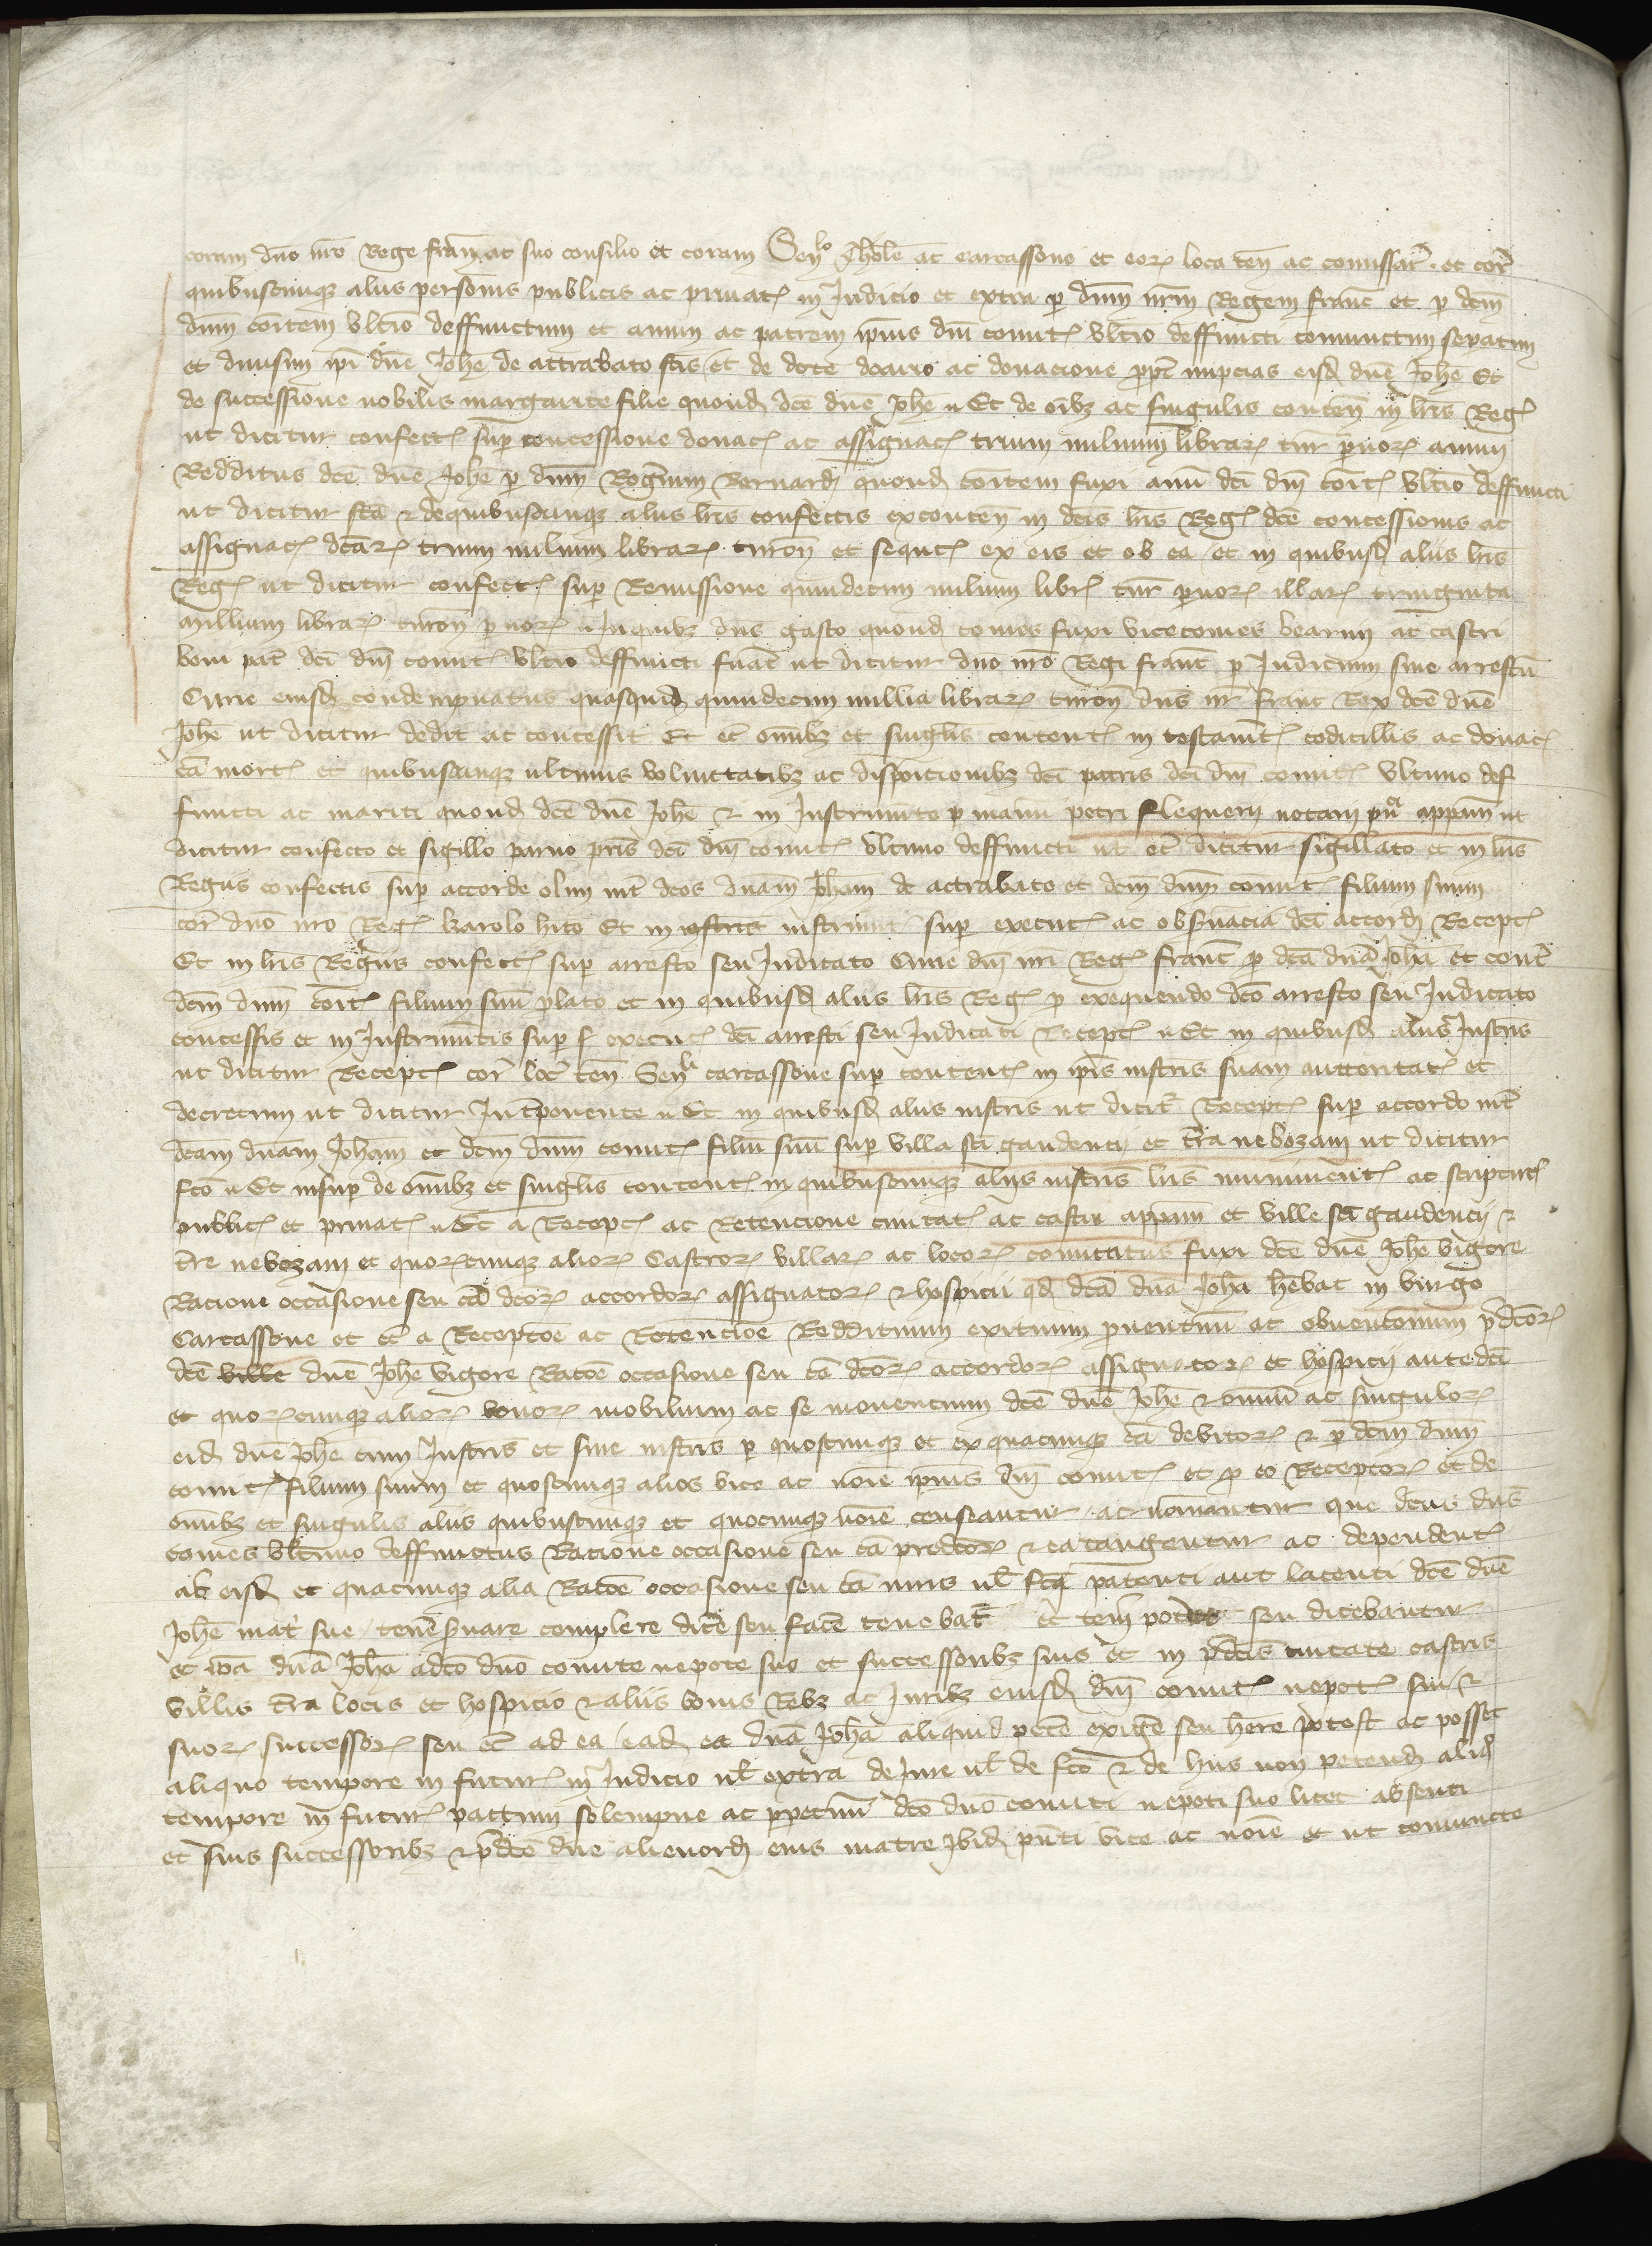 coram dño nr̄o Rege franc̄ ac suo consilio et coram Senlo Tholē ac carcassone et eorꝝ loca ten̄ ac comissar̄ et cor̄
quibuscunqꝫ aliis personis publicis ac priuatꝭ in Judicio et extra ꝑ dn̄m nr̄m Regem franc̄ et ꝑ dcm̄
dn̄m comitem vltīo deffunctum et auum ac patrem ipius dn̄i comitꝭ vltīo deffuncti coniunctim sepatim
et diuisim ipi dn̄e Joh̄e de attrabato fc̄is et de dote doario ac donacione ꝓpt̄ nupcias eisd dn̄e Joh̄e Et
de successione nobilis margarite filie quond dc̄e dn̄e Joh̄e Et de oībꝫ ac singulis conten̄ in lr̄is Regꝭ
ut dicitur confectꝭ suꝑ concessione donacꝭ ac assignacꝭ trium milium librarꝝ tur̄ ꝑuorꝝ annui
Redditus dc̄e dn̄e Joh̄e ꝑ dn̄m Rogerium Bernardi quond comitem fuxi auū dc̄i dn̄i comitꝭ vltīo deffuncti
ut dicitur fc̄a ⁊ de quibuscunqꝫ aliis lr̄is confectis ex conten̄ in dc̄is lr̄is Regꝭ dc̄e concessionis ac
assignacꝭ dc̄arꝝ trium milium librarꝝ turon̄ et sequtꝭ ex eis et ob ea et in quibusd aliis lr̄is
Regꝭ ut dicitur confectꝭ suꝑ Remissione quindecim milium librꝭ tur̄ ꝑuorꝝ illarꝝ triuginta
millium librarꝝ turon̄ ꝑuorꝝ in quibꝫ dn̄s gasto quond comes fuxi vicecomes bearnii ac castri
boni pat̄ dc̄i dn̄i comitꝭ vltīo deffuncti fuāt ut dicitur dn̄o nr̄o Regi franc̄ ꝑ Judicium siue arrestū
Curie eiusd condempnatus quasquid quindecim millia librarꝝ turon̄ dn̄s nr̄ franc̄ Rex dc̄e dn̄e
Joh̄e ut dicitur dedit ac concessit Et ec̄ om̄ibꝫ et singulis contentꝭ in testam̄tꝭ codicillis ac donacꝭ
cā mortꝭ et quibuscunqꝫ ultimis voluntatibꝫ ac dispoicionibꝫ dc̄i patris dc̄i dn̄i comitꝭ vltimo def
functi ac mariti quond dc̄e dn̄e Joh̄e ⁊ in Instrumēto ꝑ manū petri flequerii notarii appam̄ ut
dicitur confecto et sigillo paruo pr̄is dc̄i dn̄i comitꝭ vltimo deffuncti ut ec̄ dicitur sigillato et in lr̄is
Regiis confectis suꝑ accorde olim int̄ dc̄os dn̄am Joh̄am de actrabato et dcm̄ dn̄m comitꝭ filium suum
cor̄ dn̄o nr̄o Regꝭ karolo hito Et in instrument̄ suꝑ executꝭ ac obseruācia dc̄i accordi Receptꝭ
Et in lr̄is Regiis confectꝭ suꝑ arresto seu Judicato Curie dn̄i nr̄i Regꝭ franc̄ ꝑ dc̄ā dn̄ā Joh̄ā et contr̄
dcm̄ dn̄m comitꝭ filium suū ꝓlato et in quibusd aliis lr̄is Regꝭ ꝑ exequendo dc̄o arresto seu Judicato
concessis et in Instrumentis suꝑ executꝭ dc̄i arresti seu Judicati Receptꝭ Et in quibusd aliis Instr̄is
ut dicitur Receptꝭ cor̄ loc̄ ten̄ Senli carcassone suꝑ contentꝭ in ipis instr̄is suam auttoritatꝭ et
decretum ut dicitur Int̄ponente Et in quibusd aliis instr̄is ut dicit̄ Receptꝭ suꝑ accordo int̄
dc̄am dn̄am Joh̄am et dcm̄ dn̄m comitꝭ filiū suū suꝑ villa sc̄i gaudencii et t̄ra nebozani ut dicitur
fc̄o Et insuꝑ de om̄ibꝫ et singulis contentꝭ in quibuscunqꝫ aliis instr̄is lr̄is munimentꝭ ac scripturꝭ
publicꝭ et priuatꝭ Et a Recepcꝭ ac Retencione ciuitatꝭ ac castri appam̄ et ville sc̄i gaudencii ⁊
t̄re nebozani et quorꝝcunqꝫ aliorꝝ Castrorꝝ villarꝝ ac locorꝝ comitatus fuxi dc̄e dn̄e Joh̄e vigore
Racione occasione seu cā dc̄orꝝ accordorꝝ assignatorꝝ ⁊ hospicii qd dc̄ā dn̄ā Joh̄a h̄ebat in burgo
Carcassone et ec̄ a Receptōe ac Retencōe Reddituum exituum ꝓuentuū ac obuentonum p̄dc̄orꝝ
dc̄e ville dn̄e Joh̄e vigore Ratōe occasione seu cā dc̄orꝝ accordorꝝ assignatorꝝ et hospicii antedc̄i
et quorꝝcunqꝫ aliorꝝ bonorꝝ mobilium ac se mouencium dc̄e dn̄e Joh̄e ⁊ omniū ac singulorꝝ
eid dn̄e Joh̄e cum Instr̄is et sine instr̄is ꝑ quoscunqꝫ et ex quacunqꝫ cā debitorꝝ ⁊ ꝑ dcm̄ dn̄m
comitꝭ filium suum et quoscunqꝫ alios vice ac nōie ipius dn̄i comitꝭ et ꝑ eo Receptorꝝ et de
om̄ibꝫ et singulis aliis quibuscunqꝫ et quocunqꝫ nōie censeantur ac nōinantur que dc̄us dn̄s
comes vltimo deffunctus Racione occasione seu cā predc̄orꝝ ⁊ ea tangentur ac dependentꝭ
ab eisd et quacunqꝫ alia Ratōe occasione seu cā iuris ul̄ fc̄i patenti aut latenti dc̄e dn̄e
Joh̄e mat̄i sue tenē seruare complere dic̄e seu fac̄e tenebat̄ et ten̄i poterat seu dicebantur
et ip̄a dn̄a Joh̄a a dc̄o dn̄o comite nepote suo et successoribꝫ suis et in p̄dc̄is ciuitate castris
villis t̄ra locis et hospicio ⁊ aliis bonis Rebꝫ ac Juribꝫ eiusd dn̄i comitꝭ nepotꝭ sui ⁊
suorꝝ successorꝝ seu ec̄ ad ea eād ea dn̄ā Joh̄ā aliquid pet̄e exiḡe seu her̄e potest ac posset
aliquo tempore in futurꝭ in Judicio ul̄ extra de Jure ul̄ de fc̄o ⁊ de hiis non petend aliq
tempore in futurꝭ pactum solempne ac ꝑpetuū dc̄o dn̄o comiti nepoti suo licet absenti
et suis successoribꝫ ⁊ p̄dc̄e dn̄e alienordi eius matre Jbid p̄nti vice ac nōie et ut coniuncte